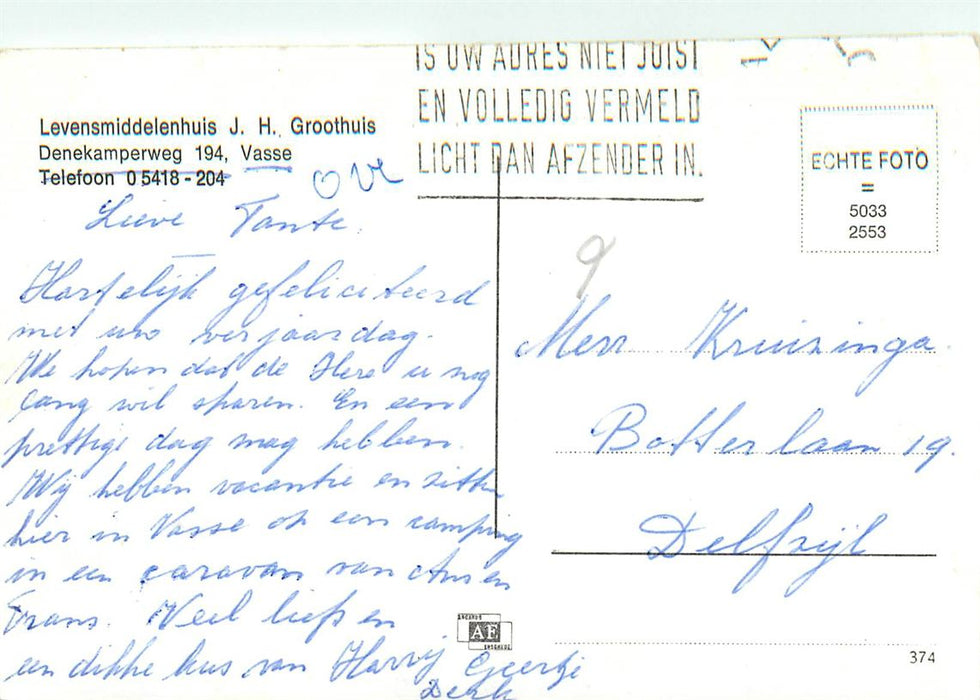 IS UW ADRES NIET JUIST
EN VOLLEDIG VERMELD
LICHT DAN AFZENDER IN.
Levensmiddelenhuis J. H. Groothuis
Denekamperweg 194, Vasse
Telefoon 05418-204
OV
Lieve Tante.
Hartelijk gefeliciteerd
met uw verjaardag.
We hopen dat de Here u nog
lang wil sparen. En een
prettige dag mag hebben.
Wij hebben vacantie en zitten
hier in Vasse op een camping
in een caravan van Ans en
Frans. Veel liefs en
een dikke kus van Harry Geertje
Derk
ECHTE FOTO
=
5033
2553
9
Mevr Kruizinga.
Botterlaan 19.
Delfzijl
AF
374